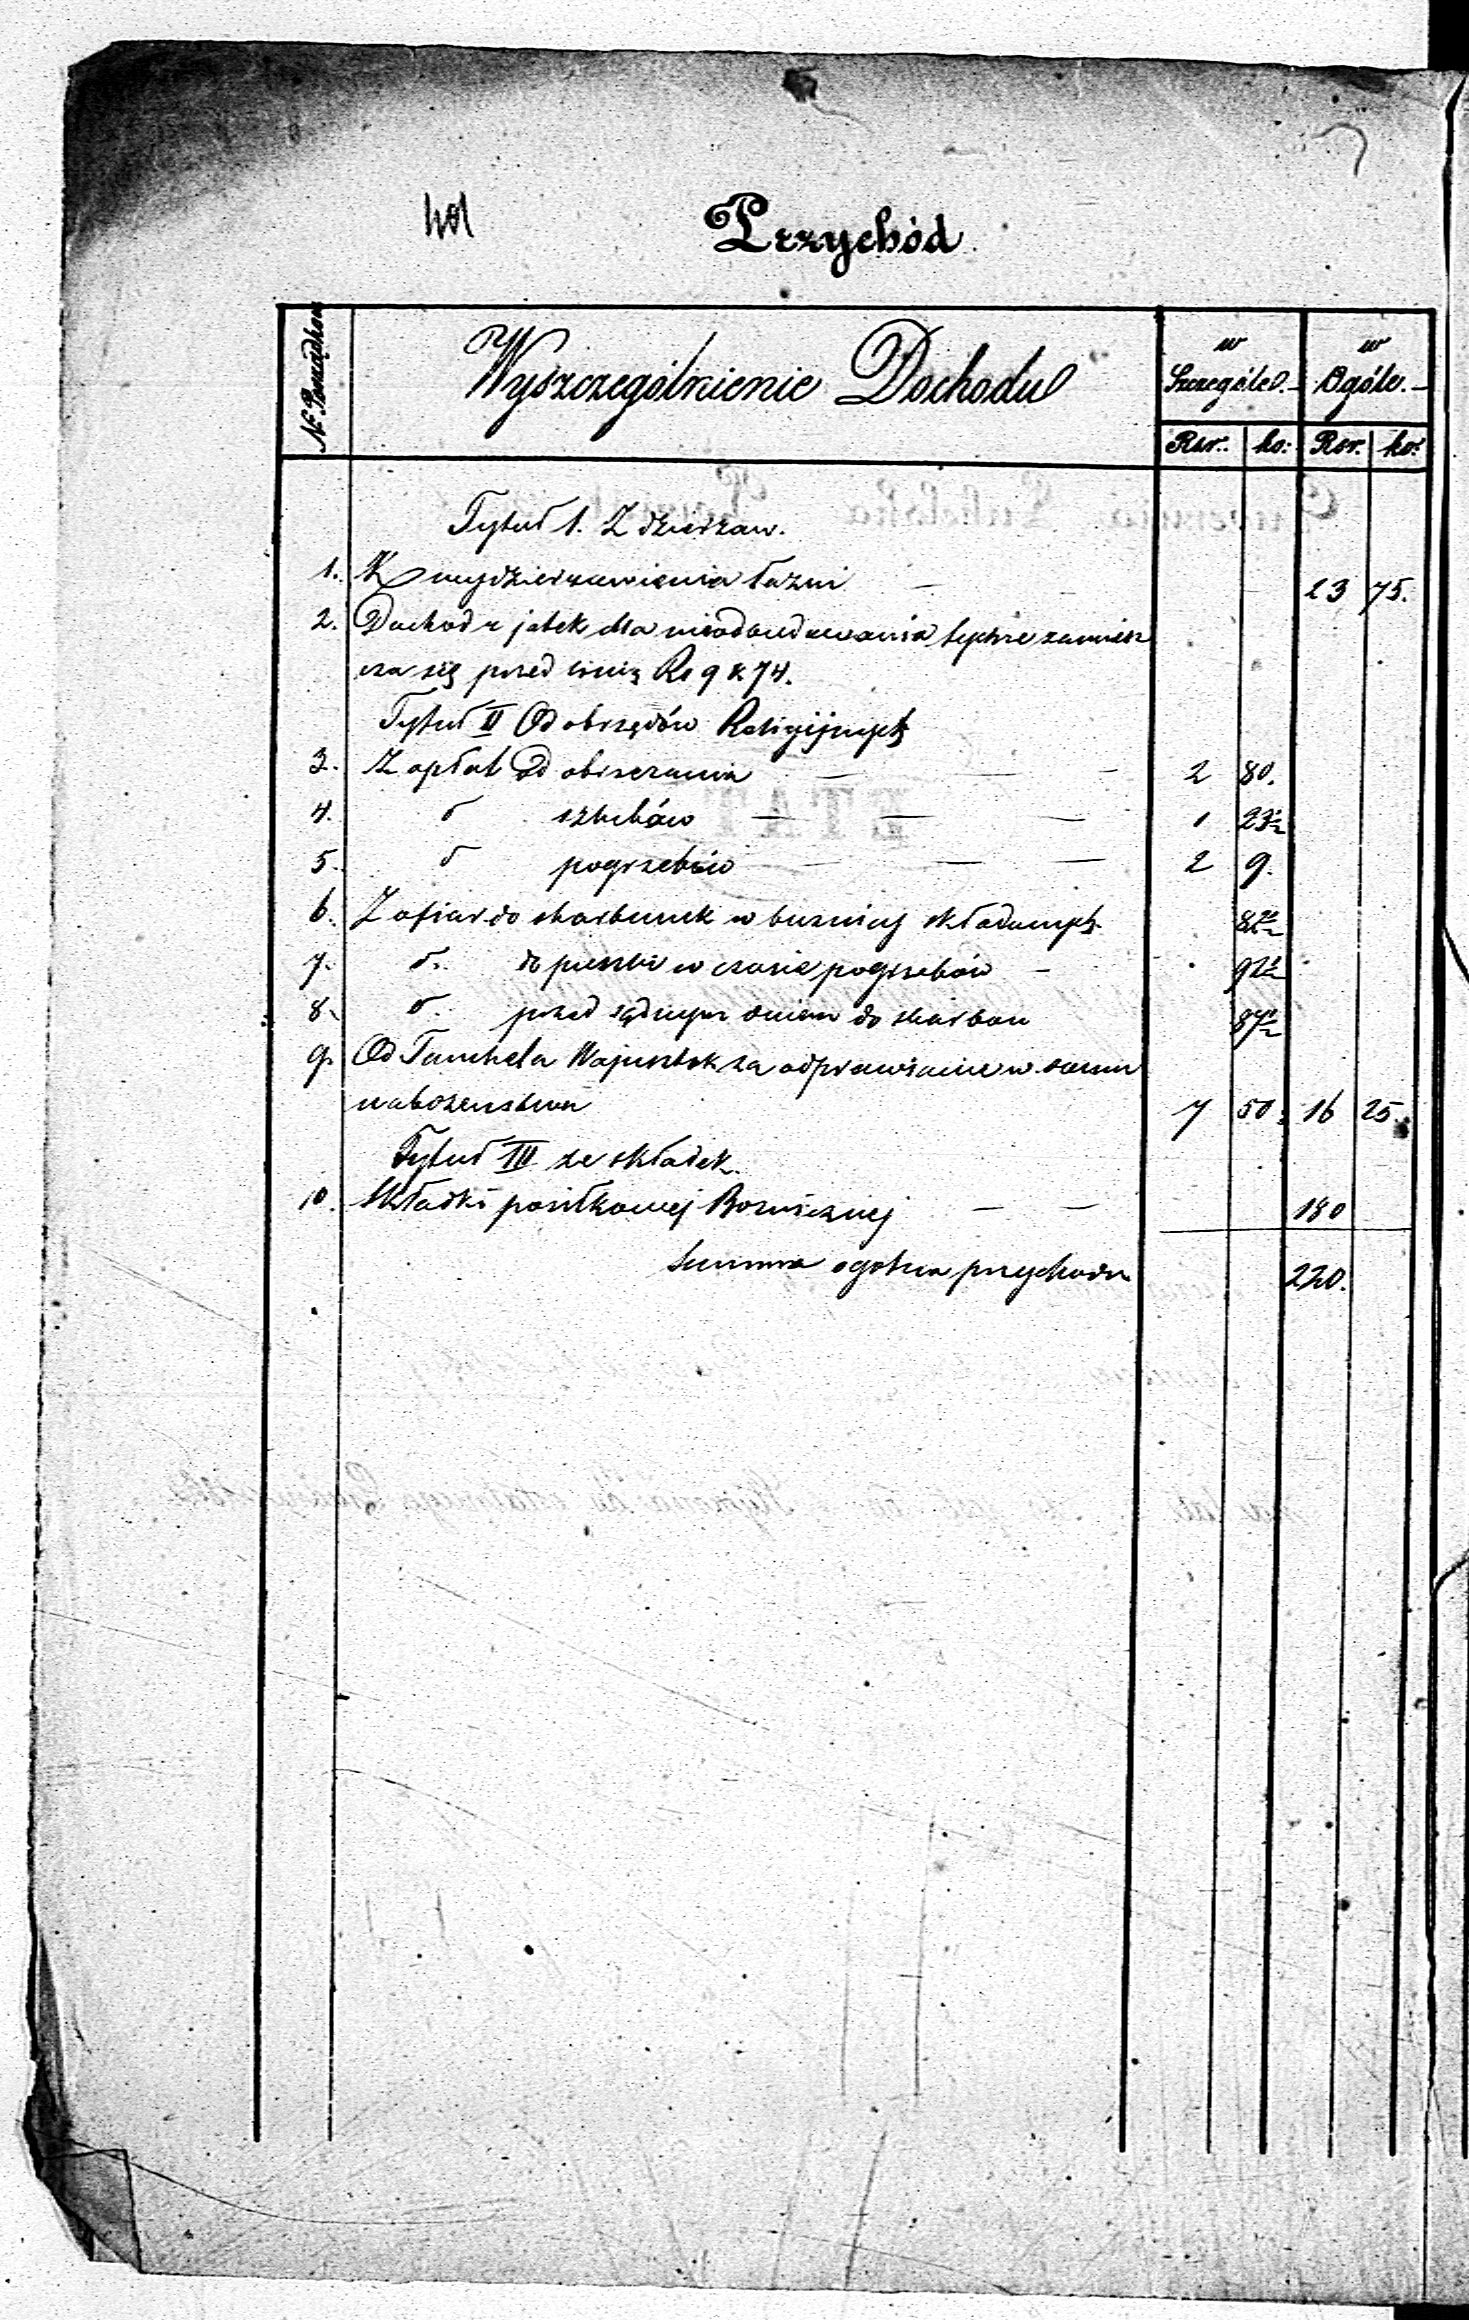 401
Przychód
Nr Porządkow
Wyszczególnienie Dochodu
w Szczególe.
w Ogóle.
Rsr. ko: Rsr. ko:
Tytuł 1. Z dzierżaw.
1. Z wydzierżawienia łaźni 23 75.
2. Dochod z jatek dla nieodbudowania tychże zamiesz
cza się przed linią Rs 9 k 74.
Tytuł II Od obrzędów Religijnych
3. Z opłat Od obrzezania 2 80.
4. d szlubów 1 23½
5. d pogrzebów 2 9.
6. Z ofiar do skarbonek w bużnicy składanych 82½
7. d. do puszki w czasie pogrzebów 92½
8. d. przed sądnym dniem do skarbon 87½
9. Od Tanchela za odprawianie w domu
nabożeństwa 7 50. 16 25.
Tytuł III ze składek.
10. Składki posiłkowej Boznicznej 180
Summa ogólna przychodu 220.